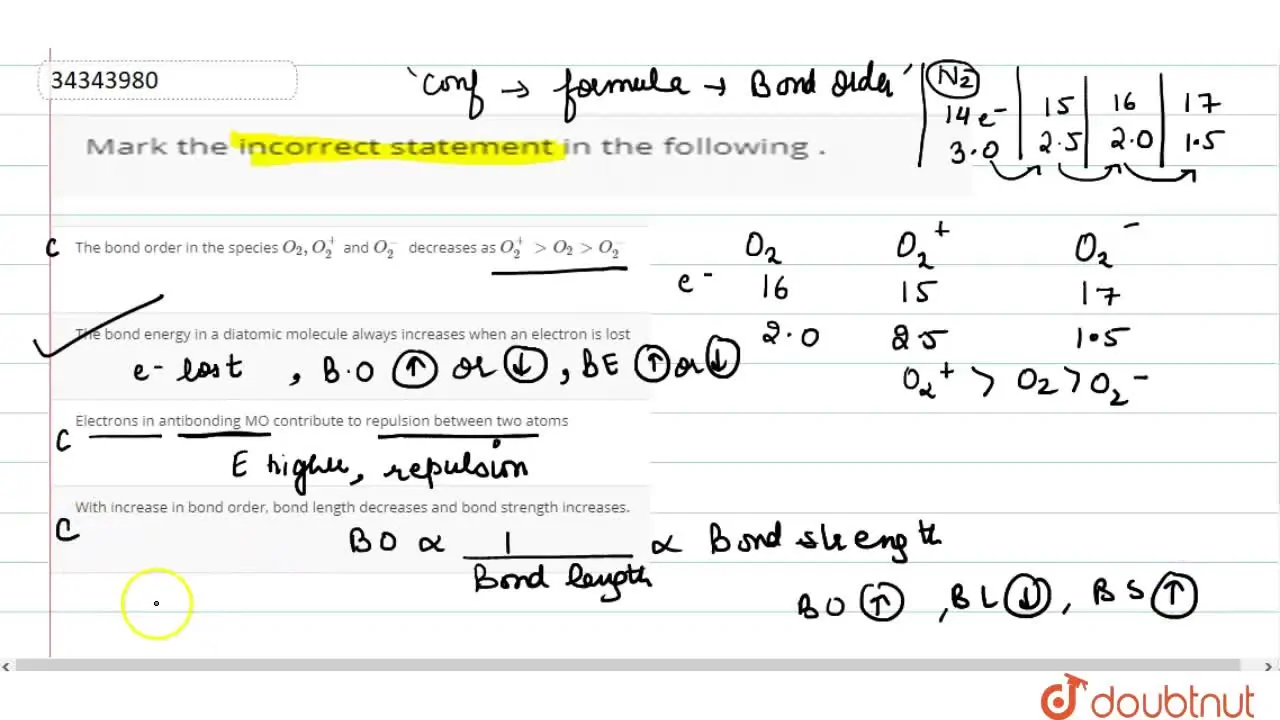 34343980
'Conf → formula → Bond Order'
N₂
14 e⁻ | 15 | 16 | 17
3.0 | 2.5 | 2.0 | 1.5
Mark the incorrect statement in the following .
C The bond order in the species O₂, O₂⁺ and O₂⁻ decreases as O₂⁺ > O₂ > O₂⁻
O₂ O₂⁺ O₂⁻
e⁻ 16 15 17
2.0 2.5 1.5
O₂⁺ > O₂ > O₂⁻
The bond energy in a diatomic molecule always increases when an electron is lost
e- lost , B.O ↑ or ↓ , BE ↑ or ↓
C Electrons in antibonding MO contribute to repulsion between two atoms
E higher, repulsion
C With increase in bond order, bond length decreases and bond strength increases.
BO ∝ 1 / Bond length ∝ Bond strength
BO ↑ , BL ↓ , BS ↑
doubtnut